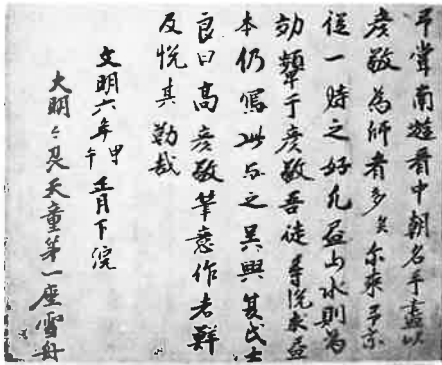 予嘗南遊看中朝名手盡以
彦敬為師者多矣尓来予亦
從一時之好凡画山水則為
効顰于彦敬吾徒等悦求画
本仍寫此与之呉興夏氏士
良曰高彦敬筆意作者鮮
及悦其勒哉
文明六年甲午正月下浣
大明天童第一座雪舟